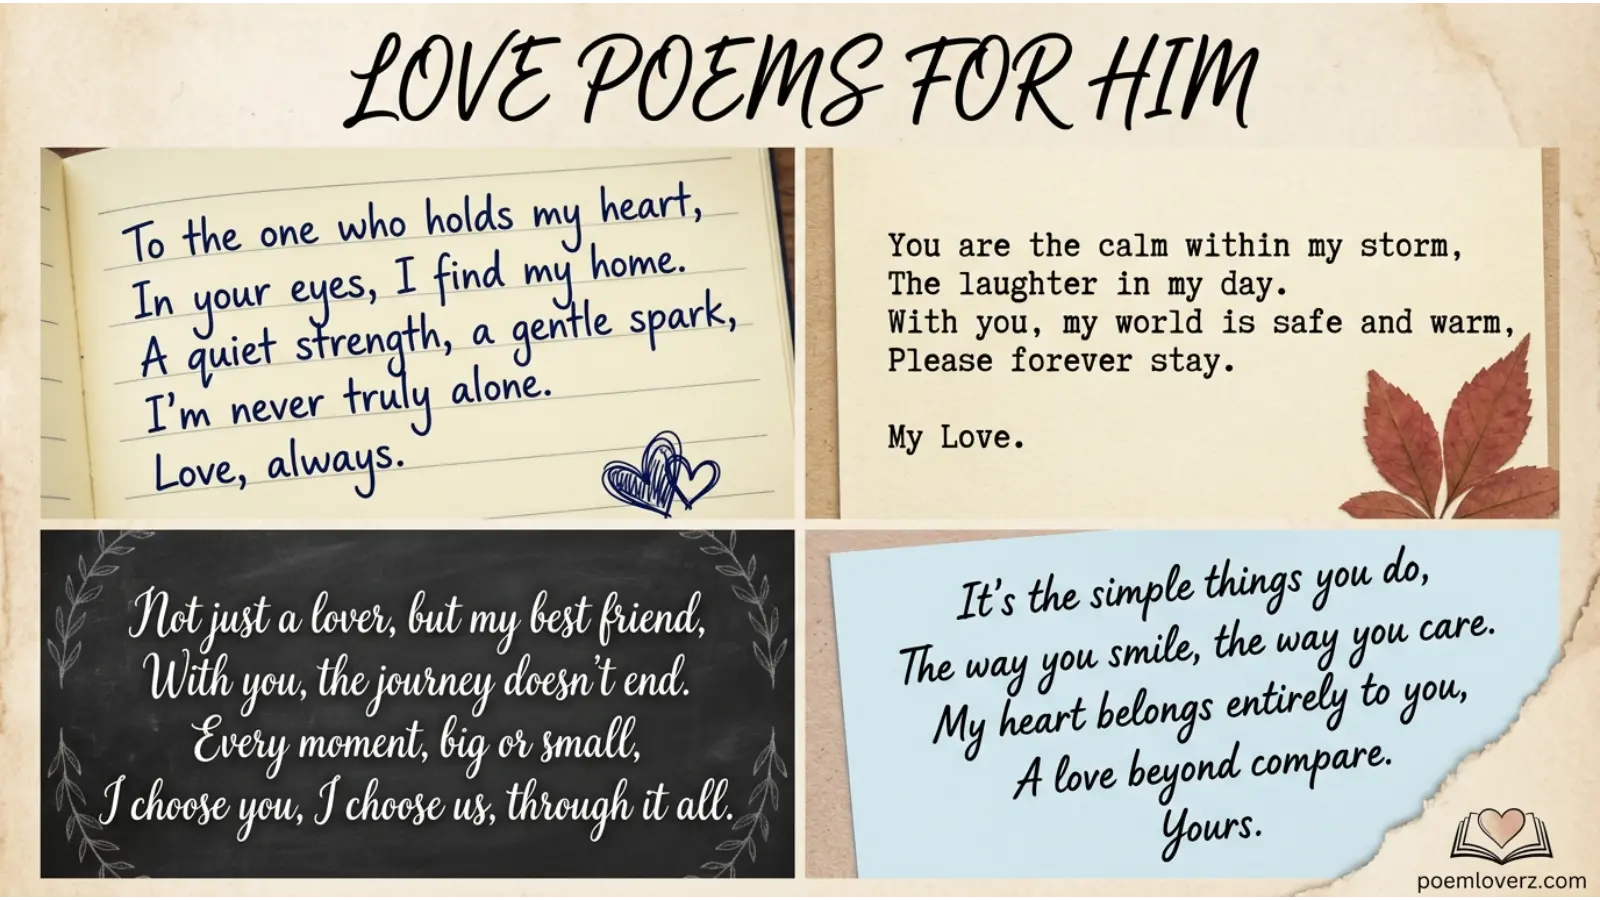 LOVE POEMS FOR HIM
To the one who holds my heart,
In your eyes, I find my home.
A quiet strength, a gentle spark,
I'm never truly alone.
Love, always.
You are the calm within my storm,
The laughter in my day.
With you, my world is safe and warm,
Please forever stay.
My Love.
Not just a lover, but my best friend,
With you, the journey doesn't end.
Every moment, big or small,
I choose you, I choose us, through it all.
It's the simple things you do,
The way you smile, the way you care.
My heart belongs entirely to you,
A love beyond compare.
Yours.
poemloverz.com